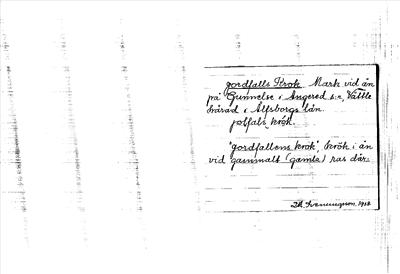 Jordfalls Krok. Mark vid ån
på Gunnelse i Angered s:n, Vättle
härad i Älfsborgs län.
jolfals krok.
"jordfallens krok", krök i ån
vid gammalt (gamla) ras där.
1928